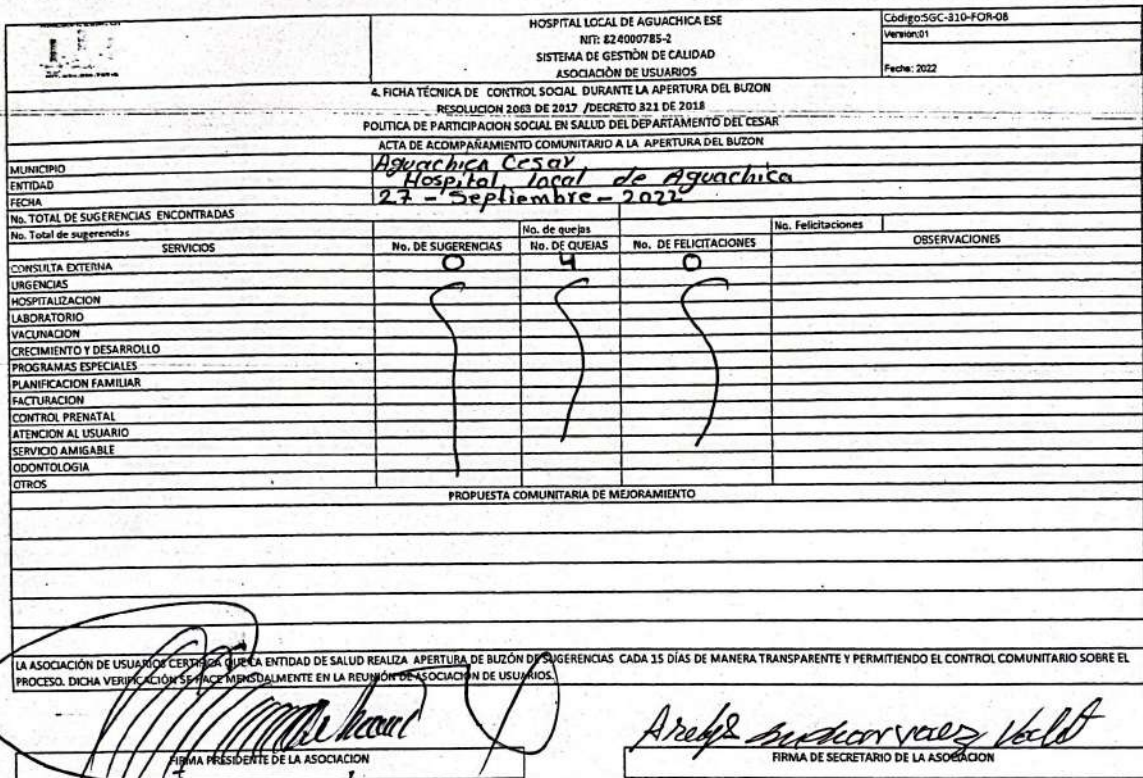 HOSPITAL LOCAL DE AGUACHICA ESE
NIT: 824000785-2
SISTEMA DE GESTIÓN DE CALIDAD
ASOCIACIÒN DE USUARIOS
Código:SGC-310-FOR-08
Version:01
Fecha: 2022
4. FICHA TÉCNICA DE CONTROL SOCIAL DURANTE LA APERTURA DEL BUZON
RESOLUCION 2063 DE 2017 /DECRETO 321 DE 2018
POLITICA DE PARTICIPACION SOCIAL EN SALUD DEL DEPARTAMENTO DEL CESAR
ACTA DE ACOMPAÑAMIENTO COMUNITARIO A LA APERTURA DEL BUZON
MUNICIPIO Aguachica Cesar
ENTIDAD Hospital local de Aguachica
FECHA 27 - Septiembre - 2022
No. TOTAL DE SUGERENCIAS ENCONTRADAS
No. Total de sugerencias No. de quejas No. Felicitaciones
SERVICIOS No. DE SUGERENCIAS No. DE QUEJAS No. DE FELICITACIONES OBSERVACIONES
CONSULTA EXTERNA 0 4 0
URGENCIAS
HOSPITALIZACION
LABORATORIO
VACUNACION
CRECIMIENTO Y DESARROLLO
PROGRAMAS ESPECIALES
PLANIFICACION FAMILIAR
FACTURACION
CONTROL PRENATAL
ATENCION AL USUARIO
SERVICIO AMIGABLE
ODONTOLOGIA
OTROS
PROPUESTA COMUNITARIA DE MEJORAMIENTO
LA ASOCIACIÓN DE USUARIOS CERTIFICA QUE LA ENTIDAD DE SALUD REALIZA APERTURA DE BUZÓN DE SUGERENCIAS CADA 15 DÍAS DE MANERA TRANSPARENTE Y PERMITIENDO EL CONTROL COMUNITARIO SOBRE EL
PROCESO. DICHA VERIFICACIÓN SE HACE MENSUALMENTE EN LA REUNIÓN DE ASOCIACIÓN DE USUARIOS.
FIRMA PRESIDENTE DE LA ASOCIACION
FIRMA DE SECRETARIO DE LA ASOCIACION